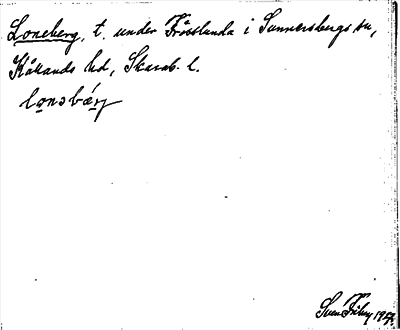 Loneberg, t. under Fröslunda i Sunnersbergs sn,
Kållands hd, Skarab. l.
lo̲nsbǽrj
Sven Fritz 1959.